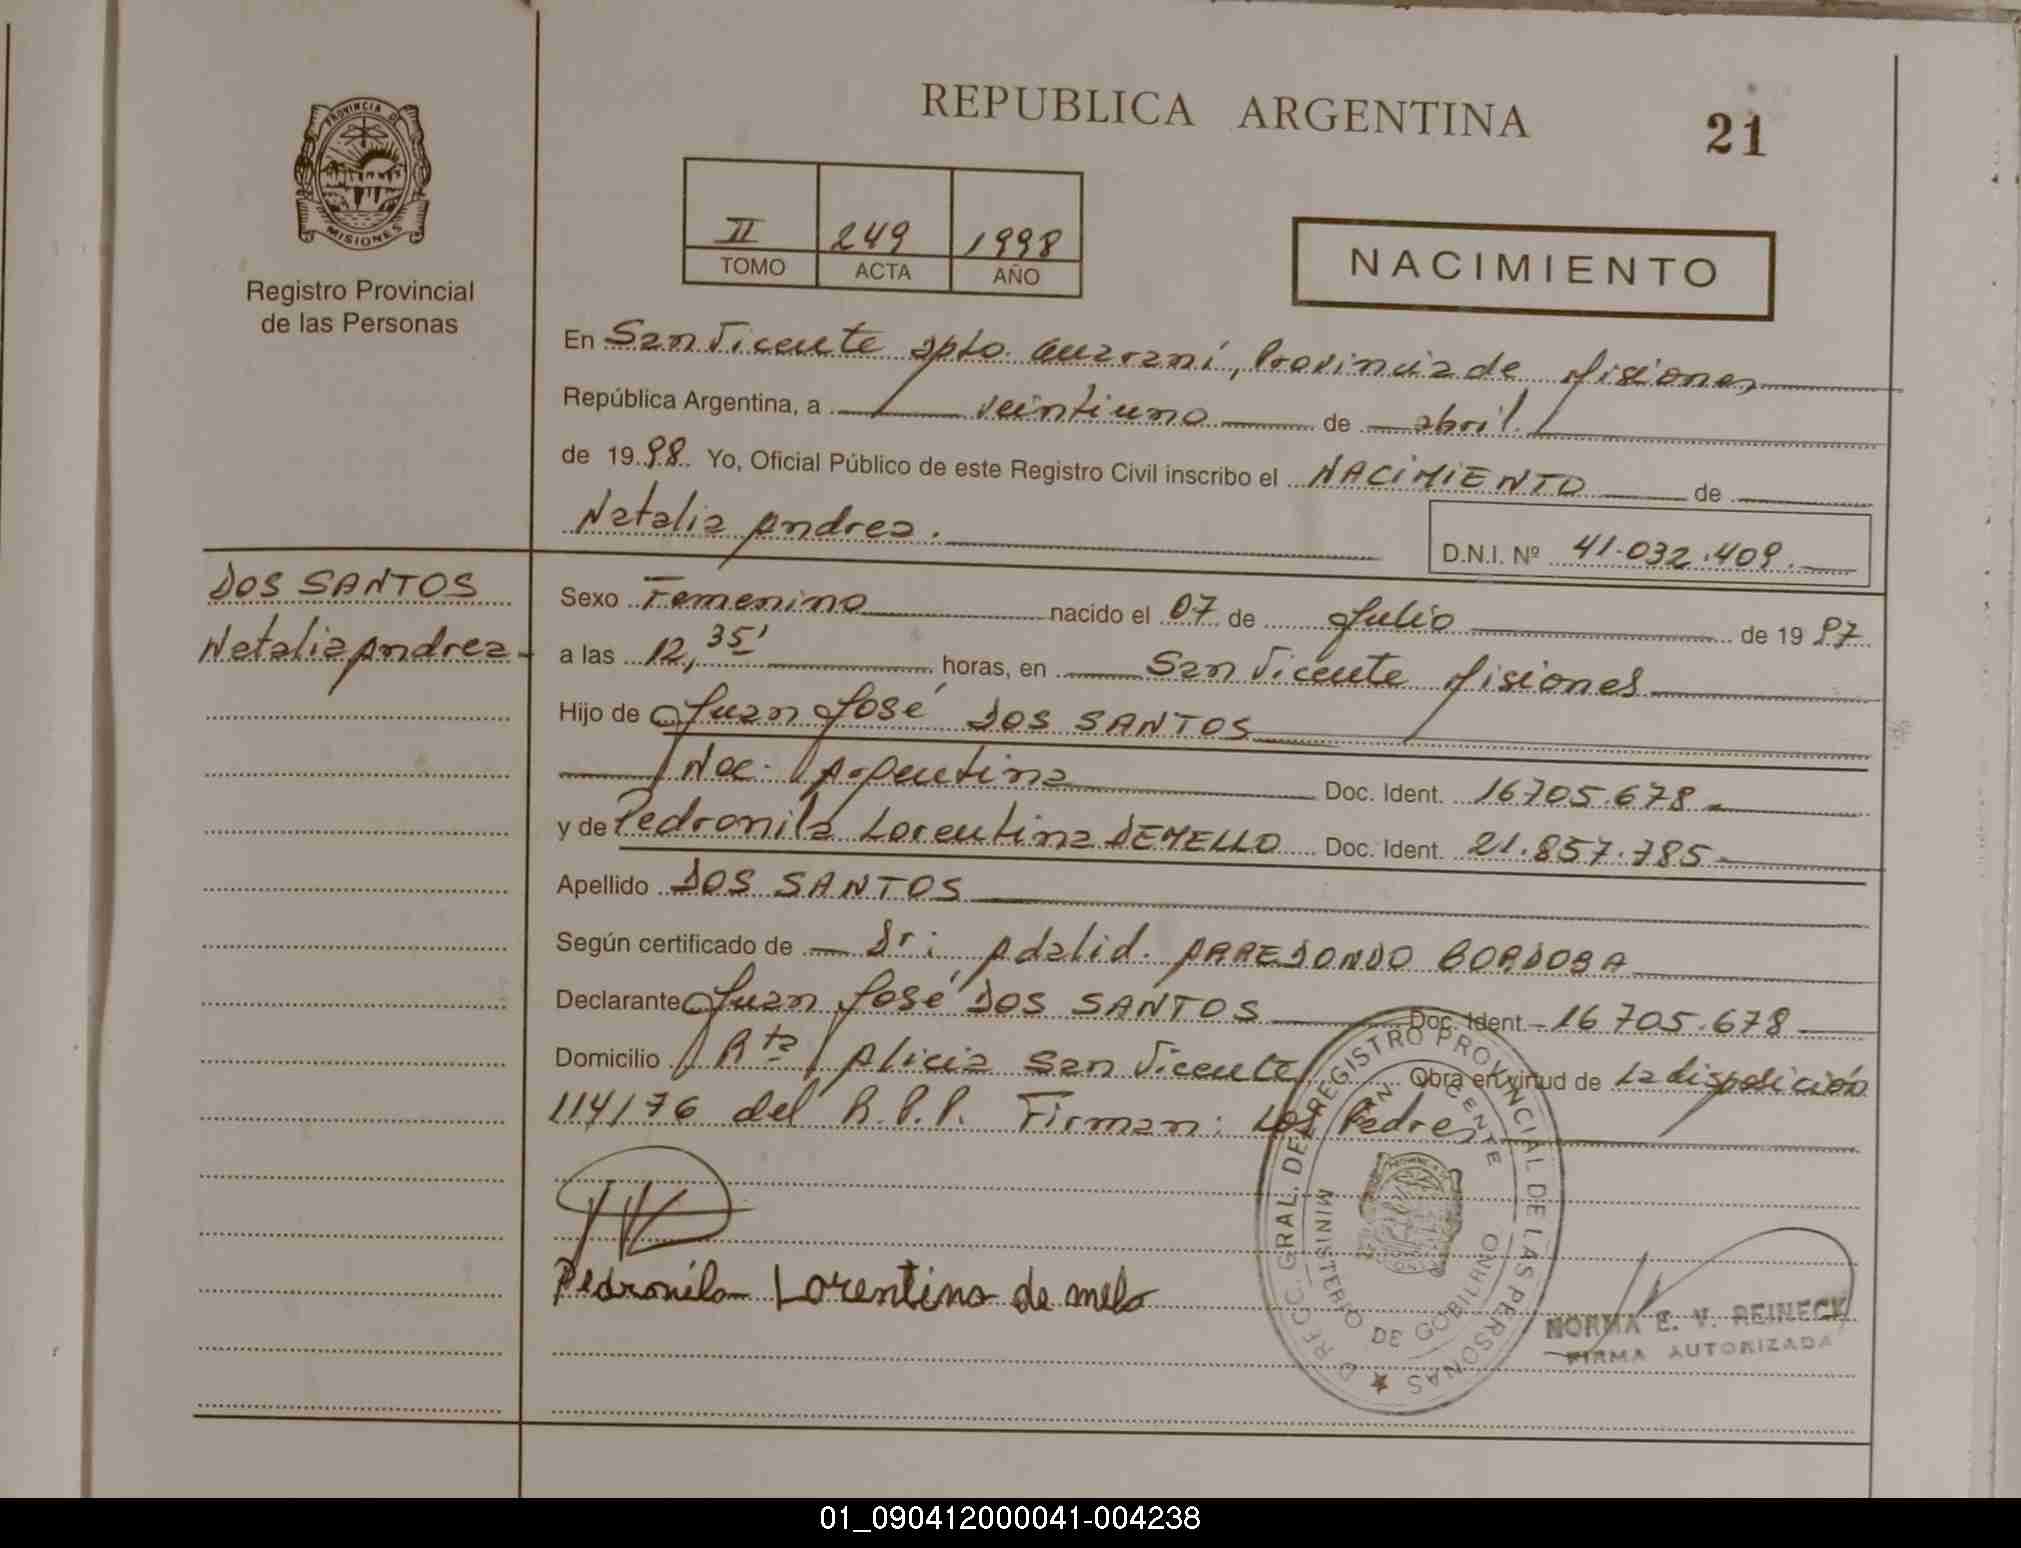 REPUBLICA ARGENTINA
21
PROVINCIA DE
MISIONES
Registro Provincial
de las Personas
II 249 1998
TOMO ACTA AÑO
NACIMIENTO
En San Vicente Dpto. Guaraní, Provincia de Misiones
República Argentina, a veintiuno de abril.
de 1998. Yo, Oficial Público de este Registro Civil inscribo el NACIMIENTO de
Natalia Andrea.
D.N.I. Nº 41.032.409.
DOS SANTOS
Natalia Andrea
Sexo Femenino nacido el 07 de Julio de 1997
a las 12,35' horas, en San Vicente Misiones
Hijo de Juan José DOS SANTOS
Nac. Argentina Doc. Ident. 16705.678
y de Pedronila Lorentina DEMELLO Doc. Ident. 21.857.785
Apellido DOS SANTOS
Según certificado de Dr: Adalid. ARREDONDO BORDOBA
Declarante Juan José DOS SANTOS Doc. Ident. 16705.678
Domicilio Rta Alicia San Vicente Obra en virtud de La disposición
114/76 del R.P.P. Firman: Los Padres
Pedronila Lorentina de melo
DIRECC. GRAL. DEL REGISTRO PROVINCIAL DE LAS PERSONAS
SAN VICENTE
MINISTERIO DE GOBIERNO
NORMA E. V. REINECK
FIRMA AUTORIZADA
01_090412000041-004238